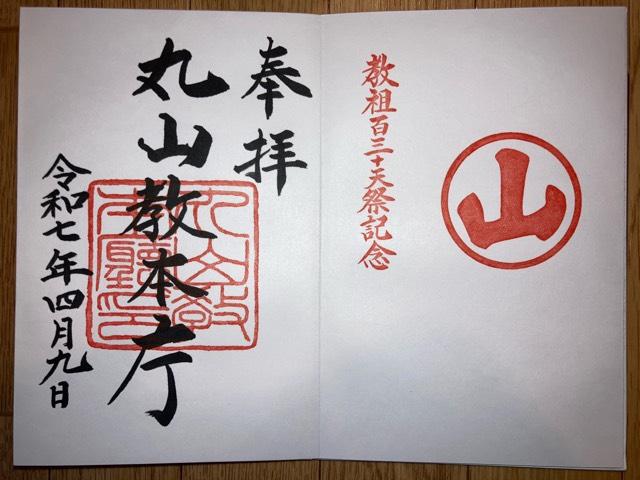 教祖百三十天祭記念
山
奉拝
丸山教本庁
令和七年四月九日